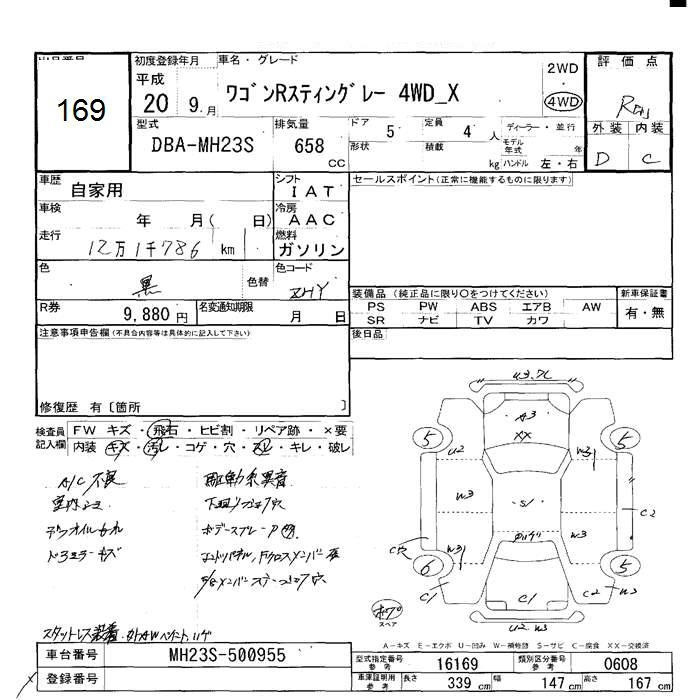 169
初度登録年月
平成
20 9.月
車名・グレード
ワゴンRスティングレー 4WD_X
2WD
・
4WD
評価点
型式
DBA-MH23S
排気量
658
CC
ドア
5
形状
定員
4 人
積載
kg
ディーラー・並行
モデル年式 年
ハンドル 左・右
外装 内装
D C
車歴
自家用
シフト
IAT
セールスポイント(正常に機能するものに限ります)
車検
年 月( 日)
冷房
AAC
走行
12万1千786 km
燃料
ガソリン
色
黒
色替
色コード
ZHY
R券
9,880 円
名変通知期限
月 日
装備品 (純正品に限り○をつけてください)
PS PW ABS エアB AW
SR ナビ TV カワ
新車保証書
有・無
注意事項申告欄(不具合内容等は具体的に記入して下さい)
後日品
修復歴 有〔箇所 〕
検査員
記入欄
FW キズ・飛石・ヒビ割・リペア跡・×要
内装 キズ・汚レ・コゲ・穴・スレ・キレ・破レ
A/C不良
駆動系異音
室内
ドアミラーキズ
スタットレス装着
車台番号
MH23S-500955
登録番号
A3
XX
5
5
U2
W3
W3
S1
C2
W3
W3
6
5
C1
C1
C2
W3
U2 W3
スペア
A-キズ E-エクボ U-凹み W-補修跡 S-サビ C-腐食 XX-交換済
型式指定番号
参考
16169
類別区分番号
参考
0608
車庫証明用
参考
長さ 339 cm
幅 147 cm
高さ 167 cm